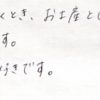 くとき、お土産とし
す。
好きです。